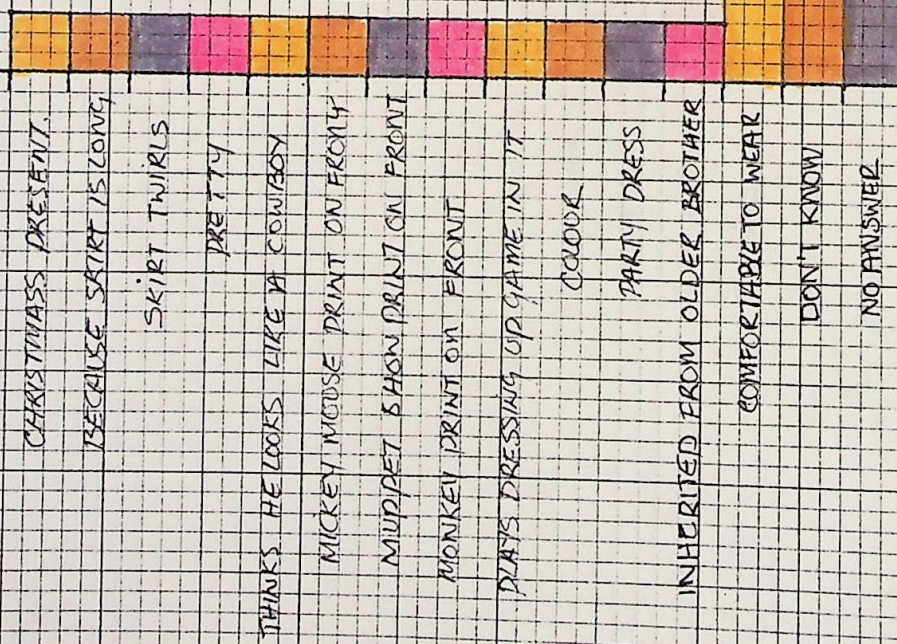 CHRISTMASS PRESENT.
BECAUSE SKIRT IS LONG
SKIRT TWIRLS
PRETTY
THINKS HE LOOKS LIKE A COWBOY
MICKEY MOUSE PRINT ON FRONT
MUPPET SHOW PRINT ON FRONT
MONKEY PRINT ON FRONT
PLAYS DRESSING UP GAME IN IT
COLOUR
PARTY DRESS
INHERITED FROM OLDER BROTHER
COMFORTABLE TO WEAR
DON'T KNOW
NO ANSWER